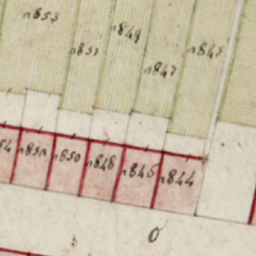 n853
n851
n849
n847
n845
54
n852
n850
n848
n846
n844
O